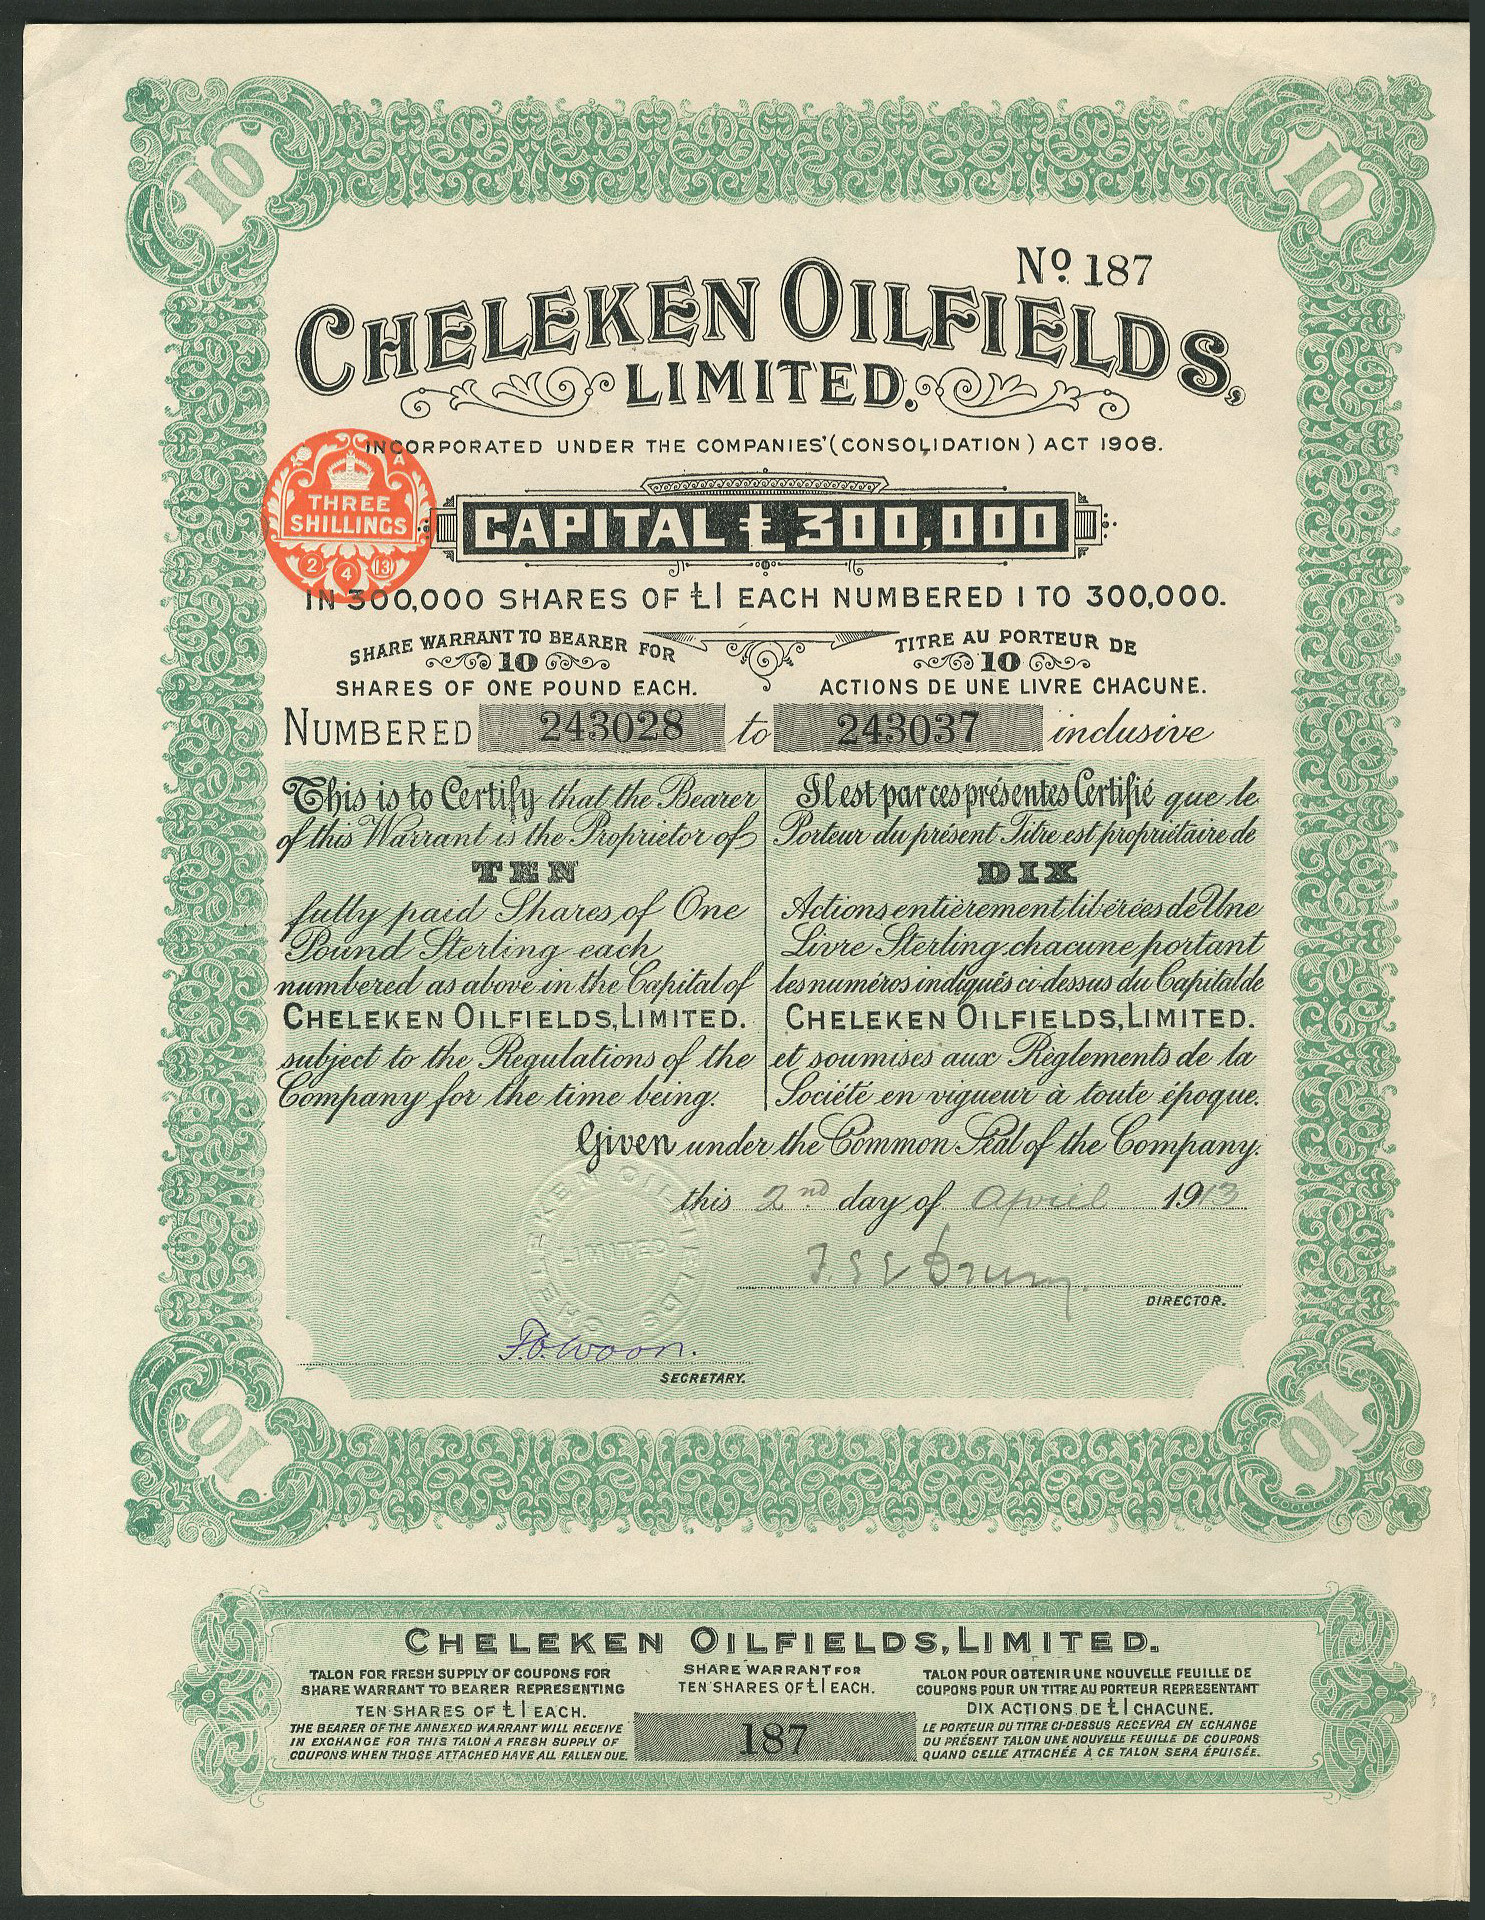 10
10
Nº 187
CHELEKEN OILFIELDS,
LIMITED.
INCORPORATED UNDER THE COMPANIES' (CONSOLIDATION) ACT 1908.
A
THREE
SHILLINGS
2 4 13
CAPITAL £300,000
IN 300,000 SHARES OF £1 EACH NUMBERED 1 TO 300,000.
SHARE WARRANT TO BEARER FOR
10
SHARES OF ONE POUND EACH.
TITRE AU PORTEUR DE
10
ACTIONS DE UNE LIVRE CHACUNE.
NUMBERED 243028 to 243037 inclusive
This is to Certify that the Bearer
of this Warrant is the Proprietor of
TEN
fully paid Shares of One
Pound Sterling each
numbered as above in the Capital of
CHELEKEN OILFIELDS, LIMITED.
subject to the Regulations of the
Company for the time being.
Il est par ces présentes Certifié que le
Porteur du présent Titre est propriétaire de
DIX
Actions entièrement libérées de Une
Livre Sterling chacune portant
les numéros indiqués ci-dessus du Capital de
CHELEKEN OILFIELDS, LIMITED.
et soumises aux Règlements de la
Société en vigueur à toute époque.
Given under the Common Seal of the Company.
this 2nd day of April 1913
DIRECTOR.
CHELEKEN OILFIELDS
LIMITED
F.O. Woon.
SECRETARY.
10
10
CHELEKEN OILFIELDS, LIMITED.
TALON FOR FRESH SUPPLY OF COUPONS FOR
SHARE WARRANT TO BEARER REPRESENTING
TEN SHARES OF £1 EACH.
THE BEARER OF THE ANNEXED WARRANT WILL RECEIVE
IN EXCHANGE FOR THIS TALON A FRESH SUPPLY OF
COUPONS WHEN THOSE ATTACHED HAVE ALL FALLEN DUE.
SHARE WARRANT FOR
TEN SHARES OF £1 EACH.
187
TALON POUR OBTENIR UNE NOUVELLE FEUILLE DE
COUPONS POUR UN TITRE AU PORTEUR REPRESENTANT
DIX ACTIONS DE £1 CHACUNE.
LE PORTEUR DU TITRE CI-DESSUS RECEVRA EN ECHANGE
DU PRÉSENT TALON UNE NOUVELLE FEUILLE DE COUPONS
QUAND CELLE ATTACHÉE À CE TALON SERA ÉPUISÉE.